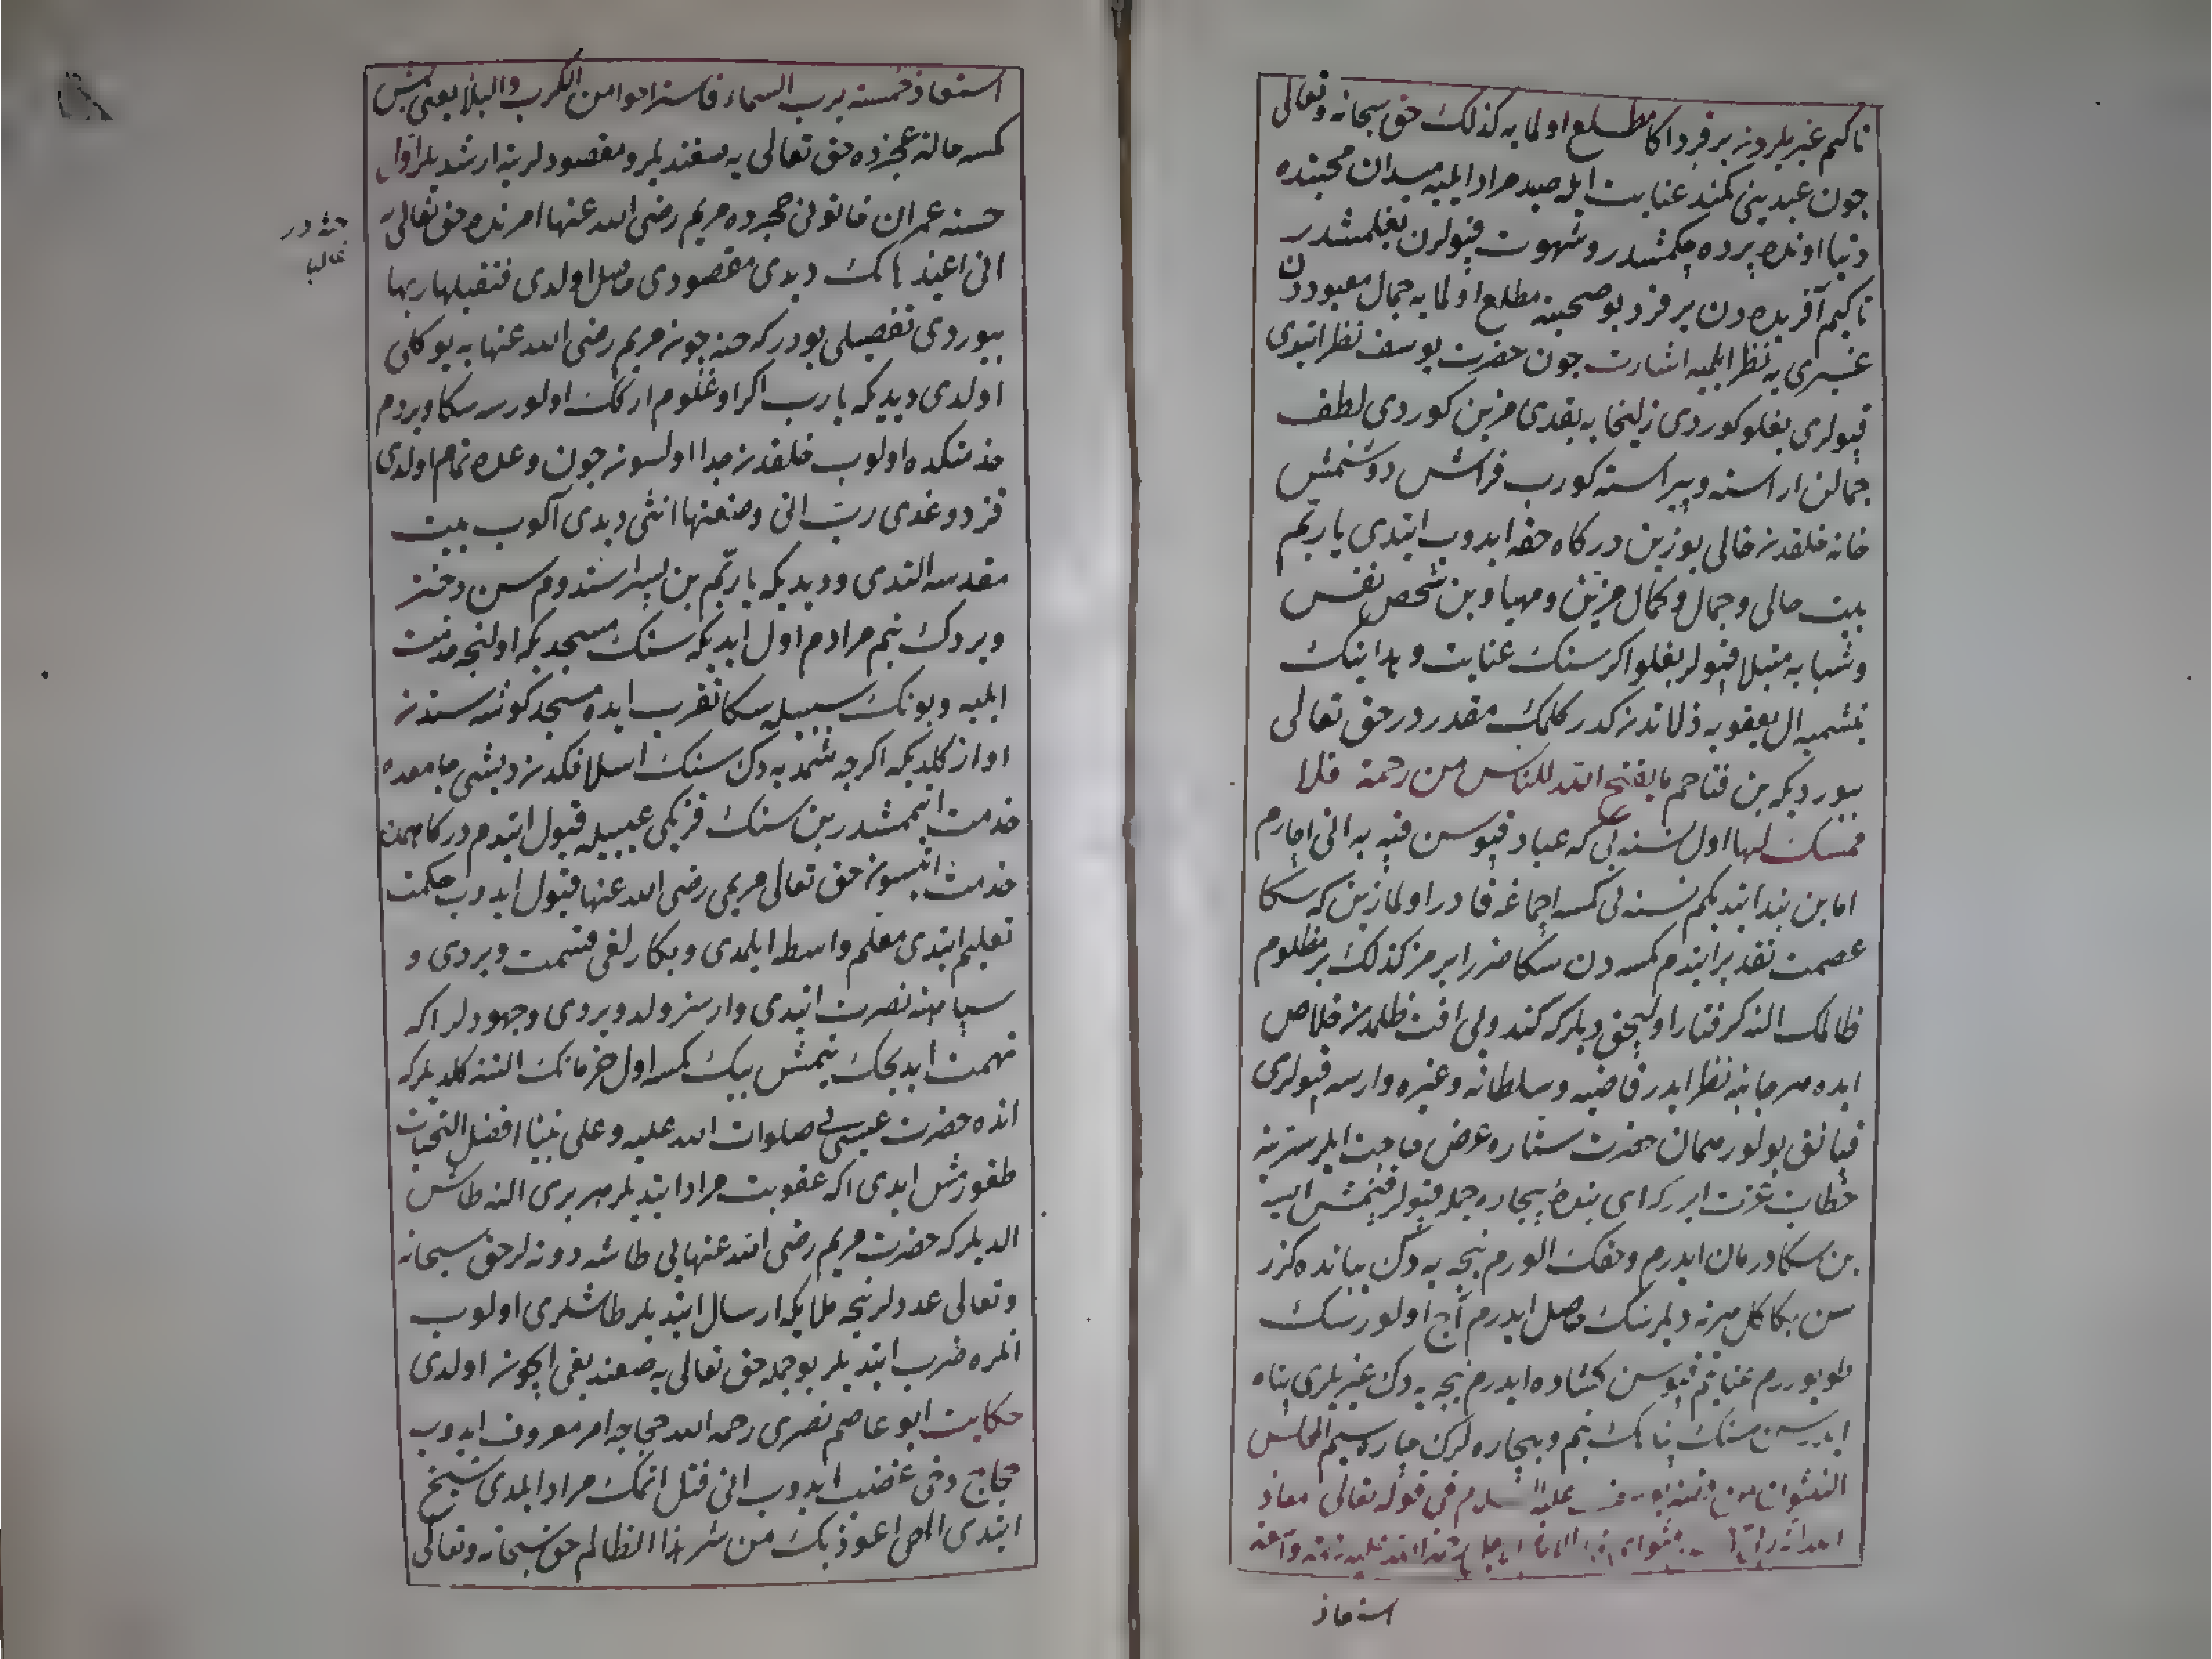 تاكیم غیریلردن بر فرد اكا مطلع اولمایه كذلك حق سبحانه وتعالی
چون عبدینی كمند عنایت ایله صید مراد ایلیه میدان محبتده
دنیا اوندن پرده چكمشدر وشهوت قپولرن بغلمشدر
تاكیم آفریده دن بر فرد بو صحبته مطلع اولمایه جمال معبوددن
غیری یه نظر ایلمیه اشارت چون حضرت یوسف نظر ایتدی
قپولری بغلو كوردی زلیخایه بقدی مزین كوردی لطف
جمالن اراسته وپیراسته كورب فراش دوشنمش
خانه خلقدن خالی یوزین دركاه حقه ایدوب ایتدی یا ربّم
بیت خالی وجمال وكمال مزین ومهیا وبن شخص نفس
وشبابه مبتلا قپولر بغلو اكر سنك عنایت وهداینك
یتشمیه ال یعقوبه ذلاتدن كدر كلمك مقدردر حق تعالی
بیوردیكه بن فتاحم ما یفتح الله للناس من رحمة فلا
ممسك لها اول نسنه یی كه عباد قپوسن قپیه بن انی اچارم
اما بن بند ایتدیكم نسنه یی كمسه اچماغه قادر اولماز بن كه سكا
عصمت تقدیر ایتدم كمسه دن سكا ضرر ایرمز كذلك بر مظلوم
ظالمك النه كرفتار اولیجق دیلر كه كندولی افت ظلمدن خلاص
ایده هر جانبه نظر ایدر قاضیه وسلطانه وغیره وارسه قپولری
قپانق بولور همان حضرت ستاره عرض حاجت ایلر سترینه
خطاب عزت ایرر كه ای بندهٔ بیچاره جمله قپولر قپنمش ایسه
بن سكا درمان ایدرم وحقك الورم نیجه یه دك بیانده كزر
سن بكا كل هر نه دیلرسك حاصل ایدرم آج اولورسك
طویوررم عنایتم قپوسن كشاده ایدرم نیجه یه دك غیریلری پناه
ایدرسن سنك پناهك بنم وبیچاره لرك چاره سیم المجلس
العشرون من قصة یوسف علیه السلام فی قوله تعالی معاذ
استعاذ
استعاذ خمسة برب السماء فاستراحوا من الكرب والبلا یعنی بش
كمسه حالة عجزده حق تعالی یه صغندیلر ومقصودلرینه ارشدیلر اول
حسنه عمران خاتونی حجرده مریم رضی الله عنها امرنده حق تعالی یه
حنه در
غالبا
انی اعیذها بك دیدی مقصودی حاصل اولدی فتقبلها ربها
بیوردی تفصیلی بودر كه حنه چون مریم رضی الله عنها یه یوكلی
اولدی دیدیكه یا رب اكر اوغلوم اركك اولورسه سكا ویردم
خدمتكده اولوب خلقدن جدا اولسون چون وعده تمام اولدی
قز دوغدی رب انی وضعتها انثی دیدی آلوب بیت
مقدسه التدی ودیدیكه یا ربّم بن پسر استدوم سن دختر
ویردك بنم مرادم اول ایدیكه سنك مسجدیكه اولنجه خدمت
ایلیه وبونك سببیله سكا تقرب ایده مسجد كوشه سندن
اواز كلدیكه اكرچه شمدیه دك سنك اسلافكدن دیشی جامعده
خدمت ایتممشدر بن سنك قزیكی عیبیله قبول ایتدم دركاهمدن
خدمت ایتسون حق تعالی مریمی رضی الله عنها قبول ایدوب حكمت
تعلیم ایتدی معلم واسطه ایلمدی وبكارلغی قسمت ویردی و
سپاهنه نصرت ایتدی وارسز ولد ویردی وجهودلر اكه
تهمت ایدیجك یتمش بیك كمسه اول خرمانك التنه كلدیلر كه
انده حضرت عیسی صلوات الله علیه وعلی نبینا افضل التحیات
طغورمش ایدی اكه عقوبت مراد ایتدیلر هر بری النه طاش
الدیلر كه حضرت مریم رضی الله عنهایی طاشه دوتهلر حق سبحانه
وتعالی عددلرنجه ملایكه ارسال ایتدیلر طاشلری اولوب
انلره ضرب ایتدیلر بو جمله حق تعالی یه صغندیغی ایچون اولدی
حكایت ابو عاصم نصری رحمه الله حجاجه امر معروف ایدوب
حجاج دخی غضب ایدوب انی قتل اتمك مراد ایلدی شیخ
ایتدی اللهم اعوذ بك من شر هذا الظالم حق سبحانه وتعالی